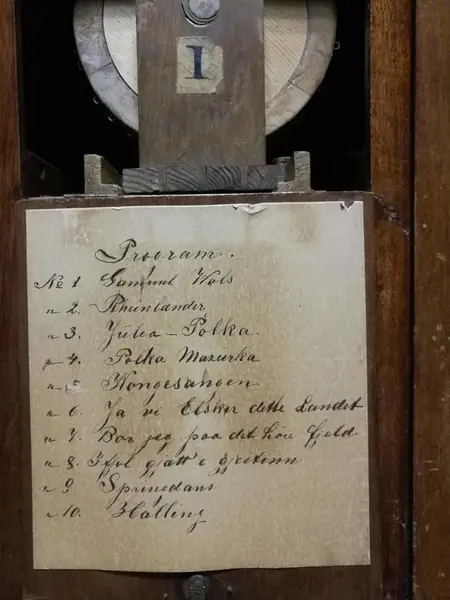 I
Program.
No 1. Gammel Vals
" 2. Rheinlander
" 3. Julia-Polka
" 4. Polka Mazurka
" 5. Kongesangen
" 6. Ja vi Elsker dette Landet
" 7. Bor jeg paa det høie fjeld
" 8. I fjol gjætt'e
" 9. Springdans
" 10. Halling